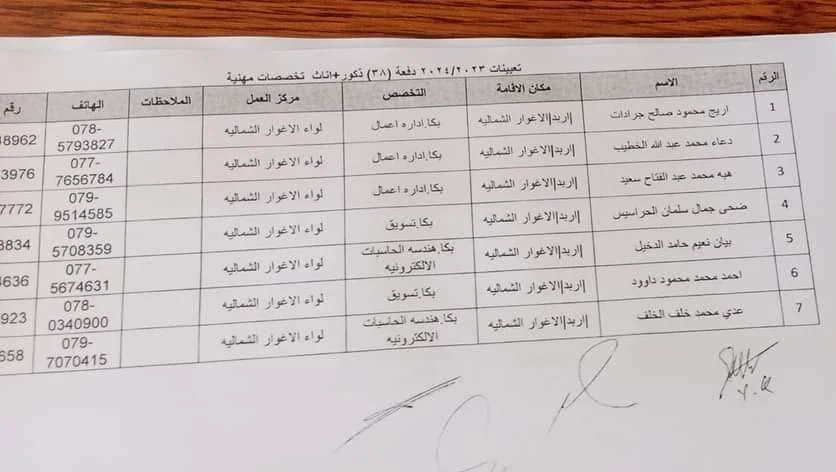 تعيينات ٢٠٢٤/٢٠٢٣ دفعة (٣٨) ذكور+اناث تخصصات مهنية
الرقم الاسم مكان الاقامة التخصص مركز العمل الملاحظات الهاتف رقم
1 اريج محمود صالح جرادات |اربد|الاغوار الشماليه بكا.اداره اعمال لواء الاغوار الشماليه 078-5793827 8962
2 دعاء محمد عبد الله الخطيب |اربد|الاغوار الشماليه بكا.اداره اعمال لواء الاغوار الشماليه 077-7656784 3976
3 هبه محمد عبد الفتاح سعيد |اربد|الاغوار الشماليه بكا.اداره اعمال لواء الاغوار الشماليه 079-9514585 7772
4 ضحى جمال سلمان الحراسيس |اربد|الاغوار الشماليه بكا.تسويق لواء الاغوار الشماليه 079-5708359 8834
5 بيان نعيم حامد الدخيل |اربد|الاغوار الشماليه بكا.هندسه الحاسبات الالكترونيه لواء الاغوار الشماليه 077-5674631 4636
6 احمد محمد محمود داوود |اربد|الاغوار الشماليه بكا.تسويق لواء الاغوار الشماليه 078-0340900 923
7 عدي محمد خلف الخلف |اربد|الاغوار الشماليه بكا.هندسه الحاسبات الالكترونيه لواء الاغوار الشماليه 079-7070415 658